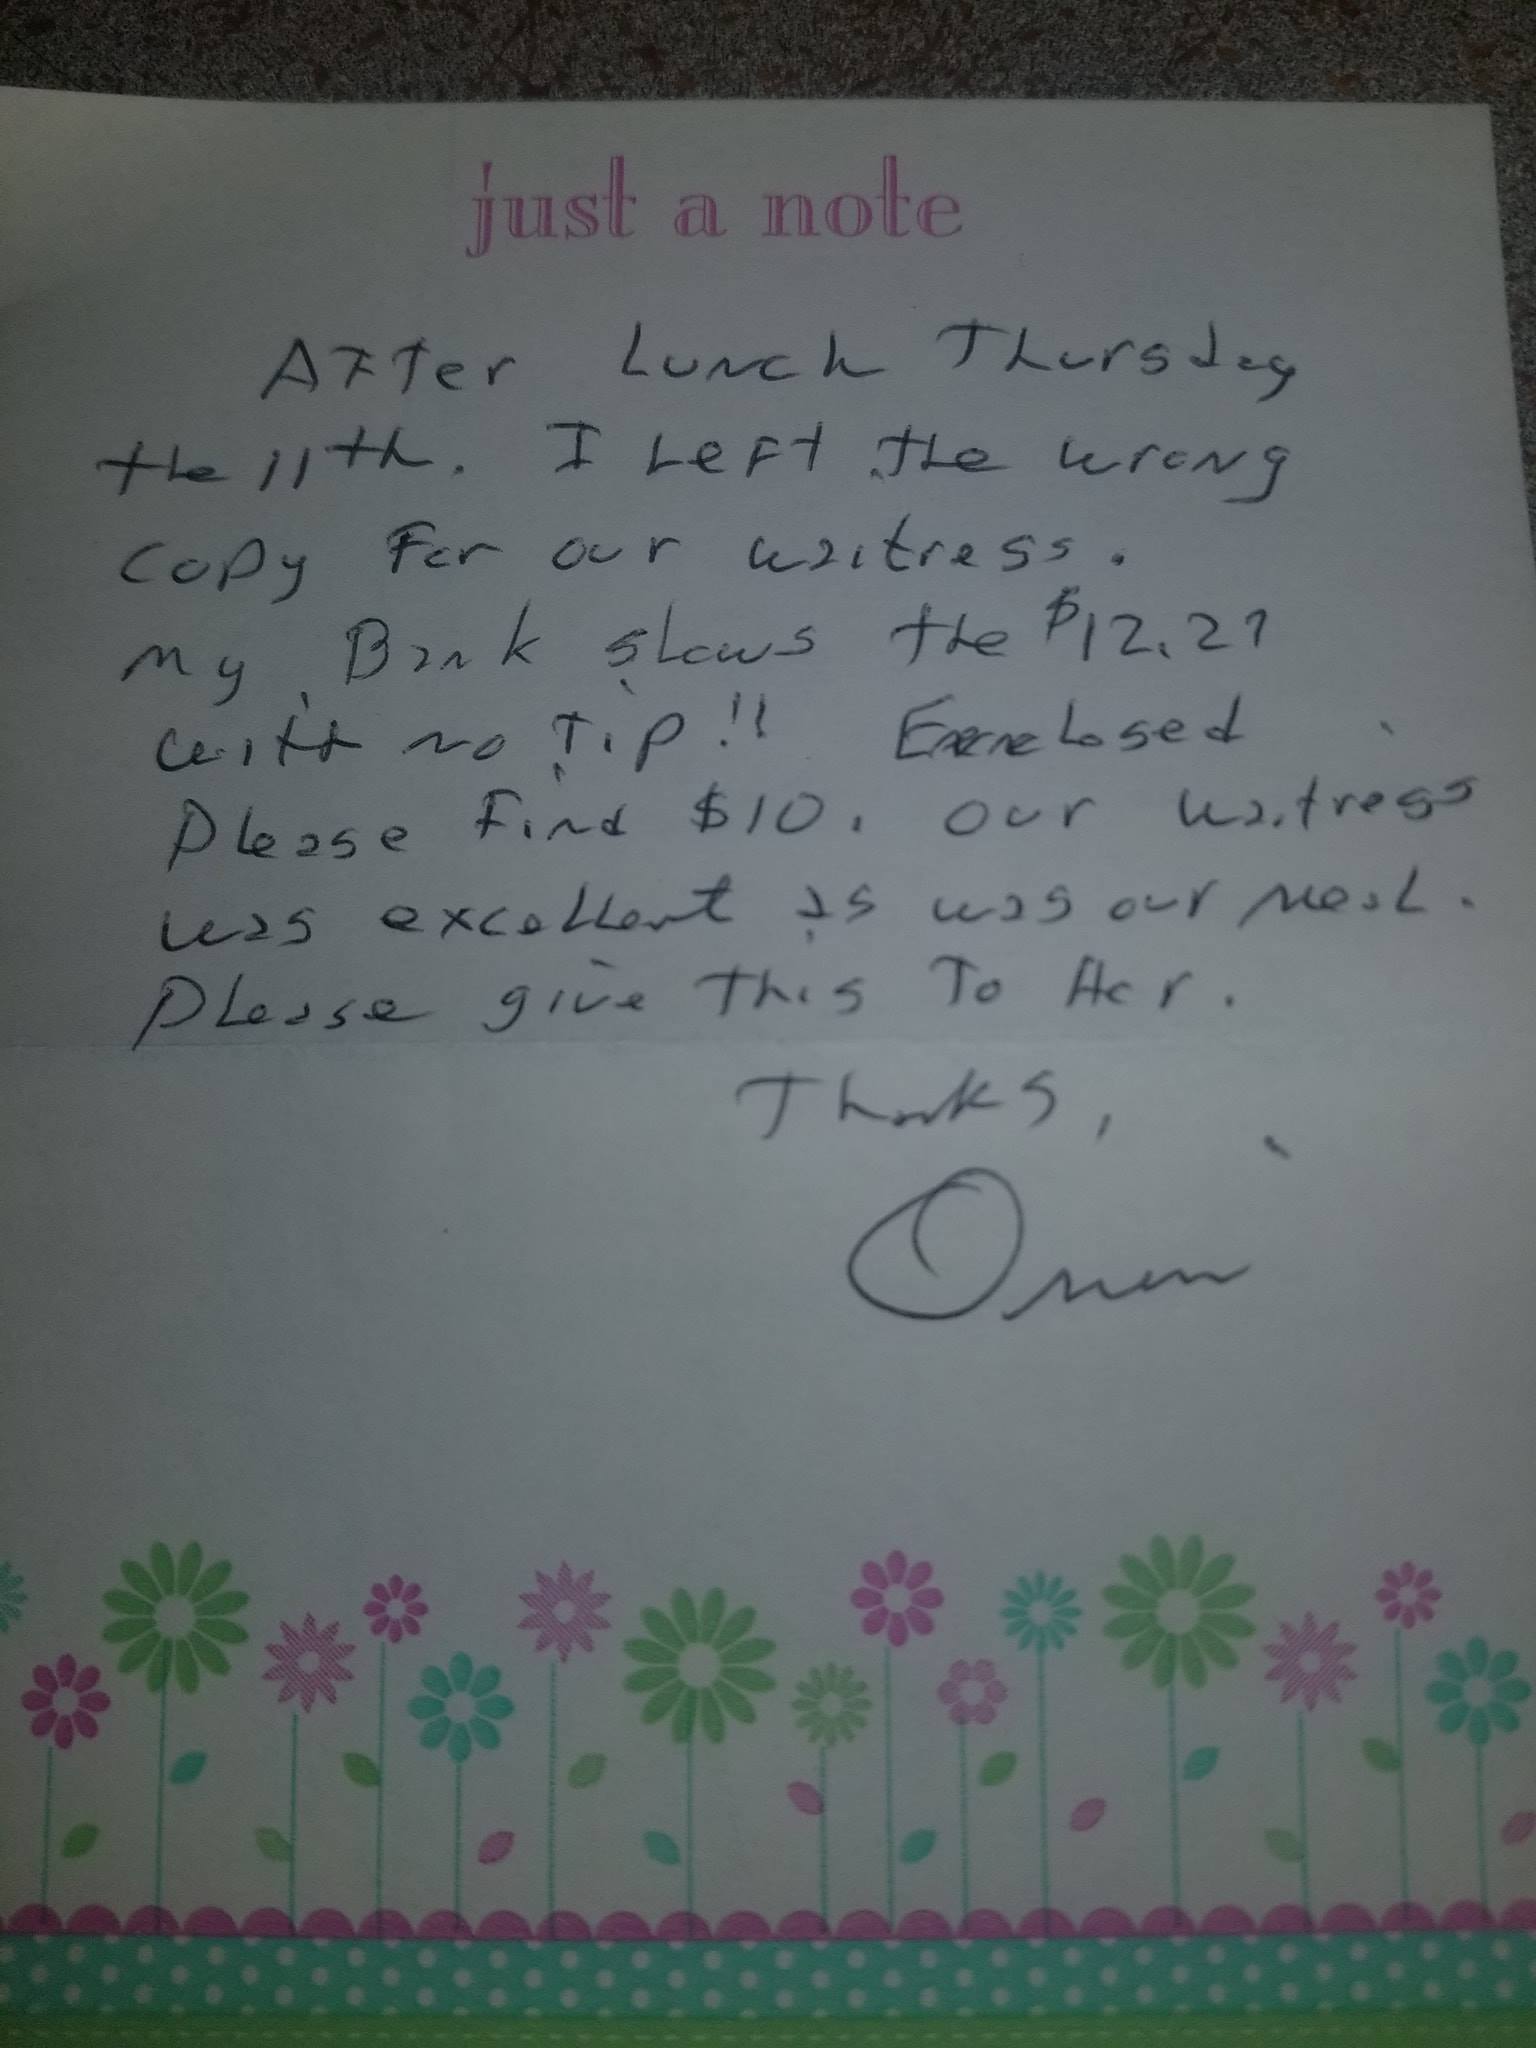 just a note
After Lunch Thursday
the 11th. I Left the wrong
copy For our waitress.
my Bank shows the $12.27
with no Tip!! Enclosed
Please Find $10. our waitress
was excellent as was our meal.
Please give this To Her.
Thanks,